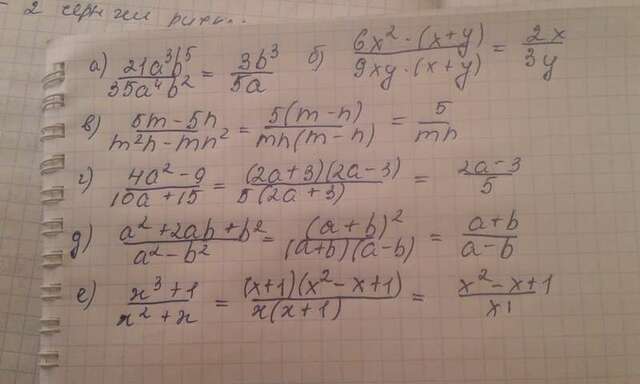 2
а) 21a³b⁵/35a⁴b² = 3b³/5a б) 6x²·(x+y)/9xy·(x+y) = 2x/3y
в) 5m-5n/m²n-mn² = 5(m-n)/mn(m-n) = 5/mn
г) 4a²-9/10a+15 = (2a+3)(2a-3)/5(2a+3) = 2a-3/5
д) a²+2ab+b²/a²-b² = (a+b)²/(a+b)(a-b) = a+b/a-b
е) x³+1/x²+x = (x+1)(x²-x+1)/x(x+1) = x²-x+1/x